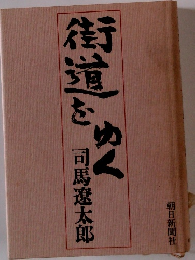 街道をゆく
司馬遼太郎
朝日新聞社